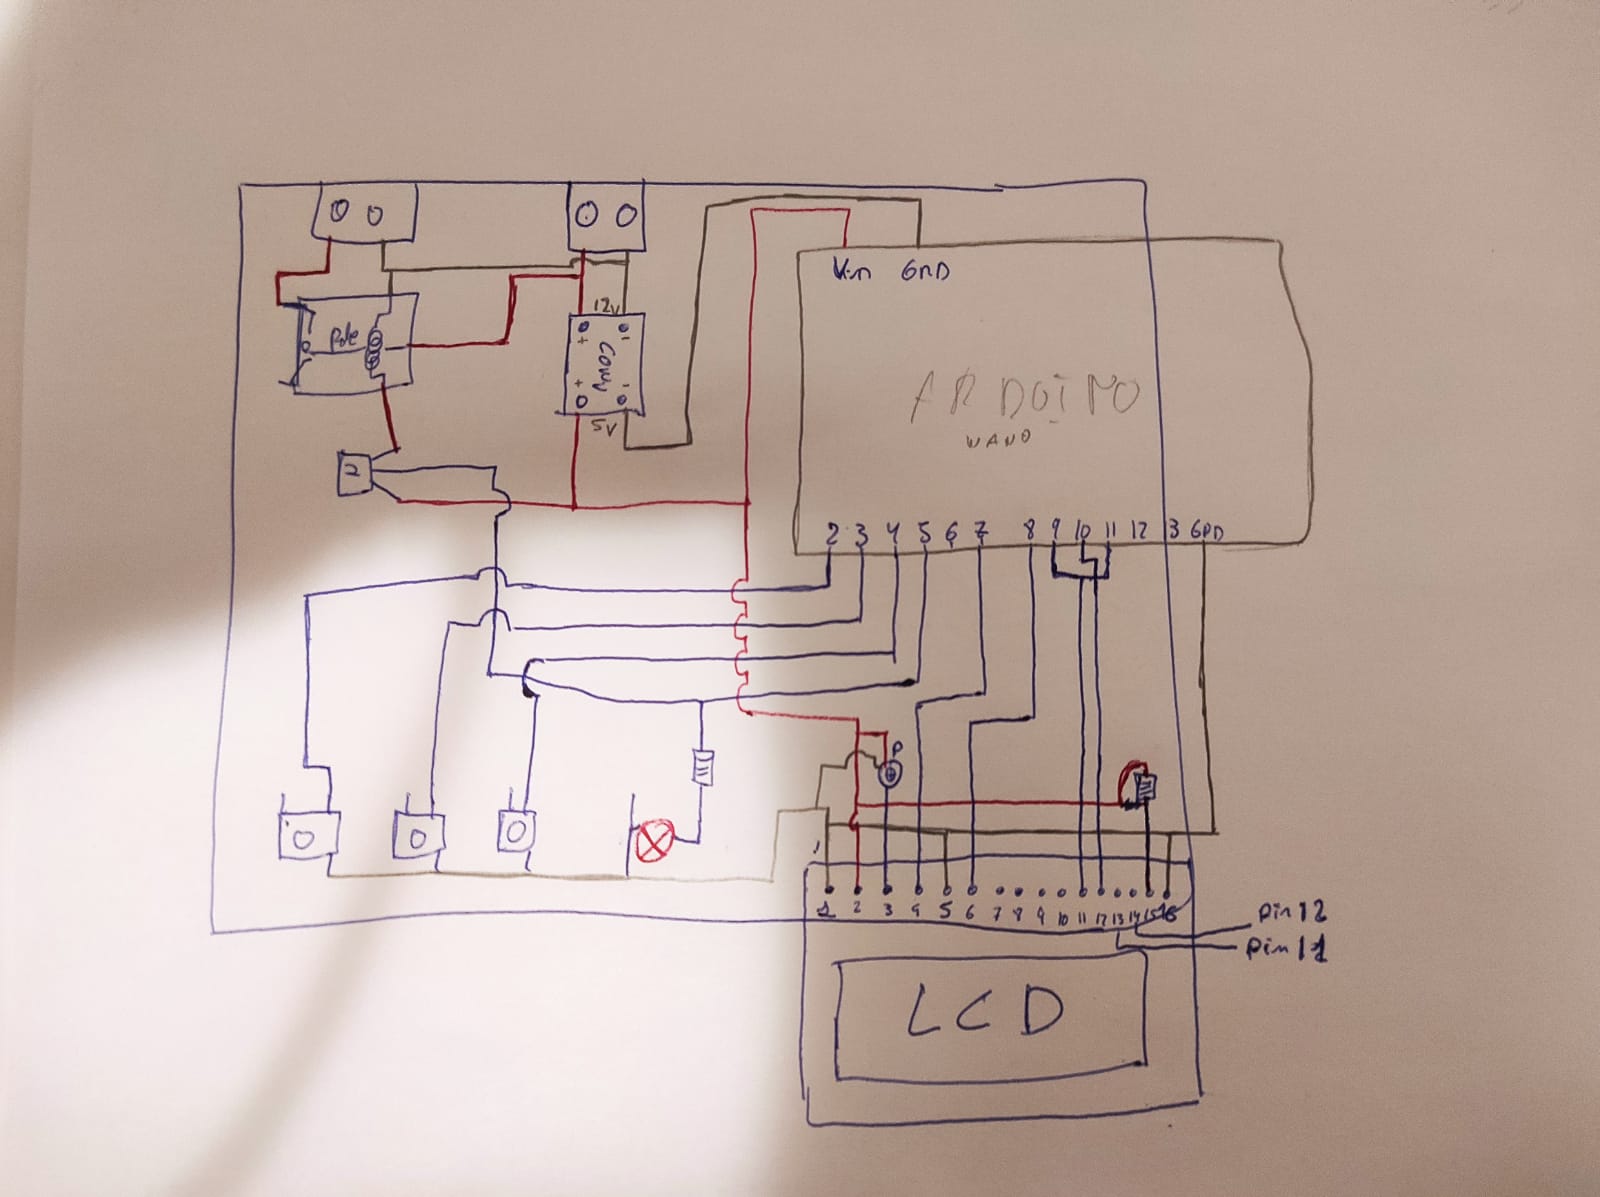 Vin GND
12v
+ -
Conv
+ -
5v
ARDUINO
NANO
2
2 3 4 5 6 7 8 9 10 11 12 13 GND
P
1 2 3 4 5 6 7 8 9 10 11 12 13 14 15 16
pin 12
pin 11
LCD